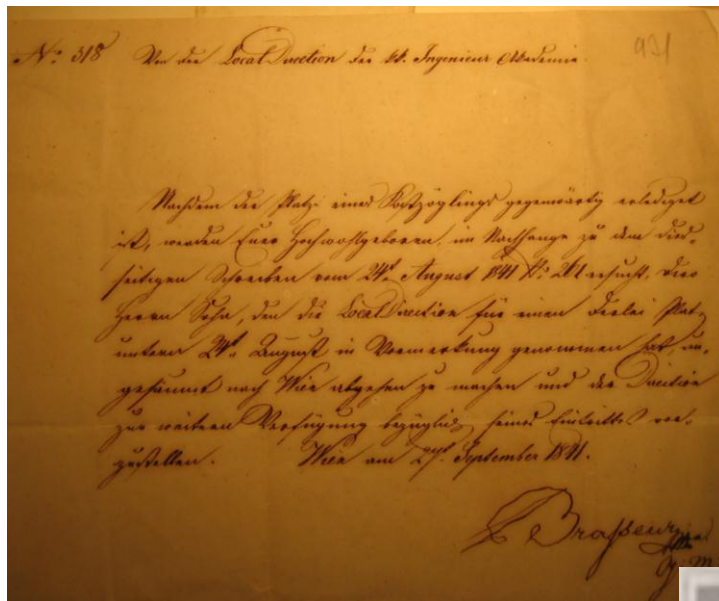 No: 318 Von der Local Direction der kk. Ingenieur Akademie. 921
Nachdem der Platz eines Kostzöglings gegenwärtig erlediget
ist, werden Euer Hochwohlgeboren, im Nachhange zu dem dies-
seitigen Schreiben vom 24t. August 1841 No: 261 ersucht, dero
Herrn Sohn, den die Local Direction für einen derlei Platz
unterm 24t. August in Vormerkung genommen hat, un-
gesäumt nach Wien abgehen zu machen und der Direction
zur weitern Verfügung bezüglich seines Eintrittes vor-
zustellen. Wien am September 1841.